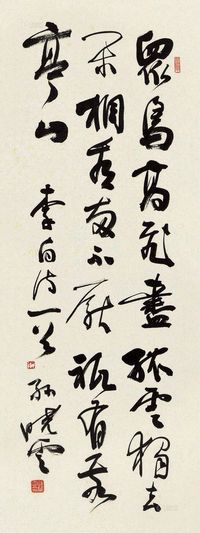 眾鳥高飛盡孤雲獨去
閑相看兩不厭祗有敬
亭山 李白詩一首 孫曉雲